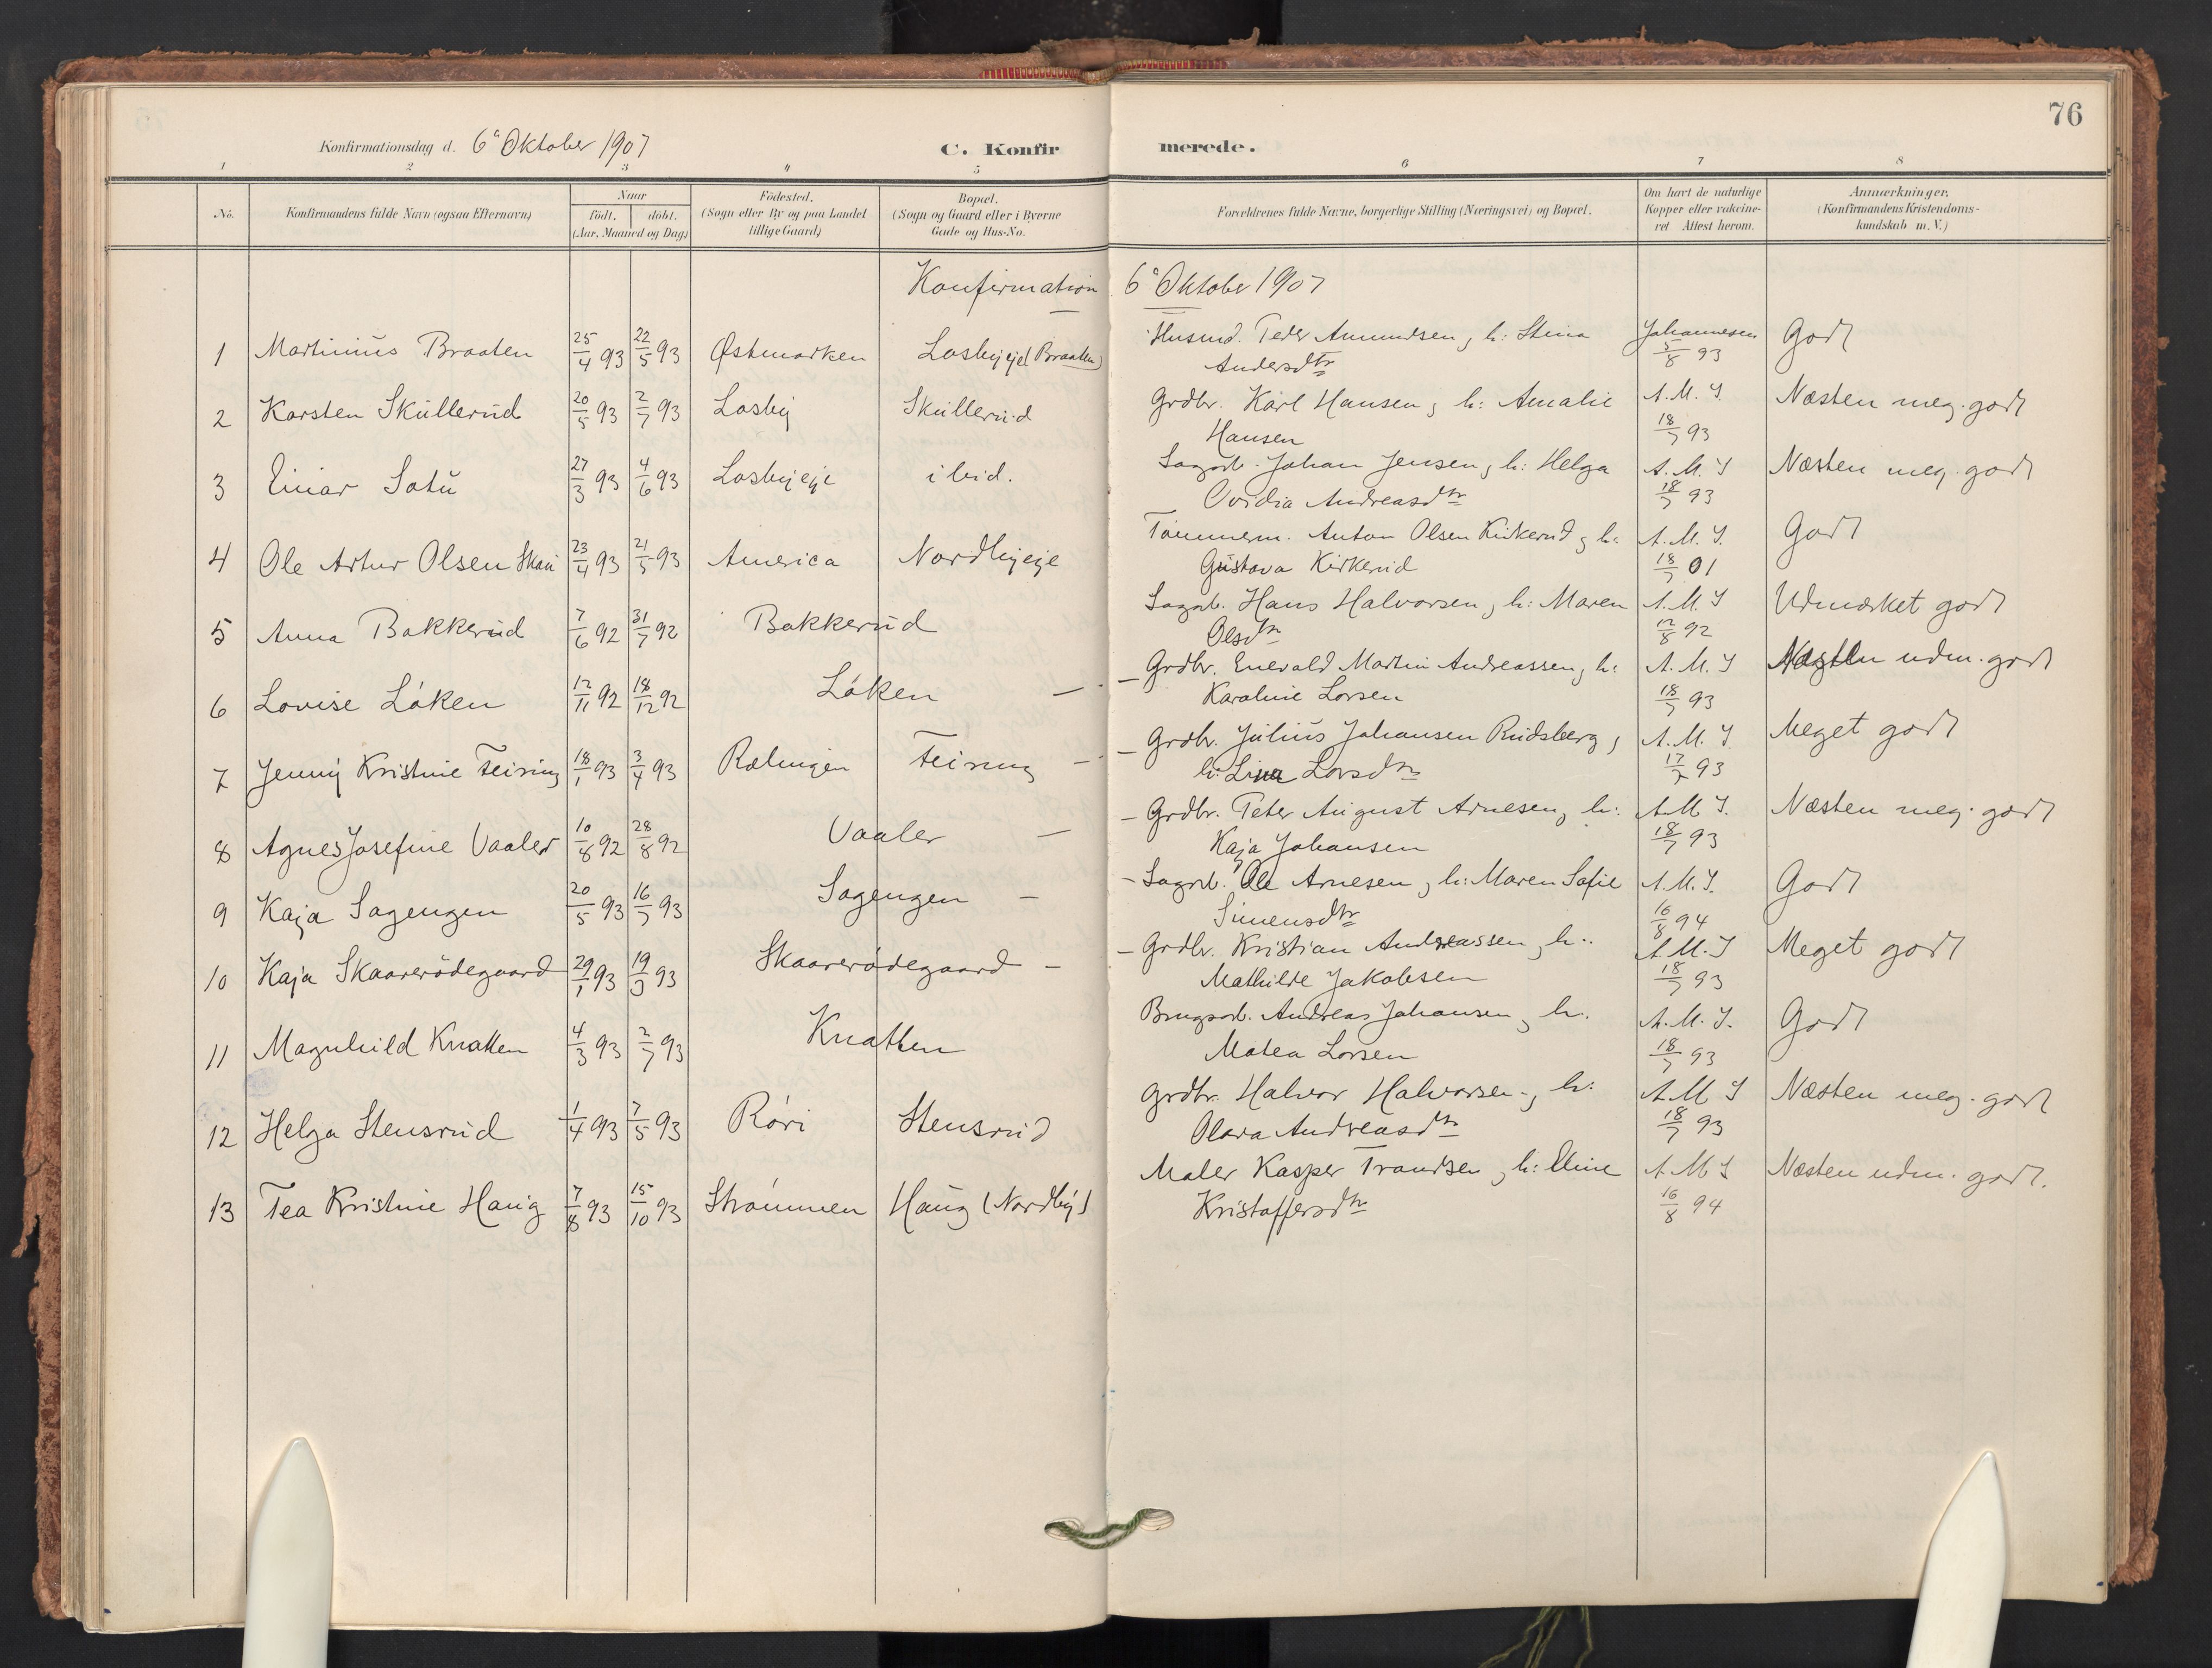 76
Konfirmationsdag d. 6te Oktober 1907
C. Konfirmerede.
1 2 3 4 5 6 7 8
No.
Konfirmandens fulde Navn (ogsaa Efternavn)
Naar
födt. döbt.
(Aar, Maaned og Dag)
Födested.
(Sogn eller By og paa Landet
tillige Gaard)
Bopæl.
(Sogn og Gaard eller i Byerne
Gade og Hus-No.
Forældrenes fulde Navne, borgerlige Stilling (Næringsvei) og Bopæl.
Om havt de naturlige
Kopper eller vakcine-
ret Attest herom.
Anmærkninger.
(Konfirmandens Kristendoms-
kundskab m.V.)
Konfirmation 6te Oktober 1907
1 Martinius Braaten 25/4 93 22/5 93 Østmarken Losbyeje (Braaten) Husmd. Peder Amundsen, h: Stina Johannesen Godt
Andersdtr 5/8 93
2 Karsten Skullerud 20/5 93 2/7 93 Losby Skullerud Grdbr. Karl Hansen, h: Amalie A.M.I. Næsten meg. godt
Hansen 18/7 93
3 Einar Satu 27/3 93 4/6 93 Losbyeje ibid. Sagarb. Johan Jensen, h: Helga A.M.I Næsten meg. godt
Ovidia Andreasdtr 18/7 93
4 Ole Artur Olsen Skau 23/4 93 21/5 93 America Nordbyeje Tömmerm. Anton Olsen Kirkerud, h: A.M.I. Godt
Gustava Kirkerud 18/7 01
5 Anna Bakkerud 7/6 92 31/7 92 Bakkerud Sagarb. Hans Halvorsen, h: Maren A.M.I Udmærket godt
Olsdtr 12/8 92
6 Lovise Löken 12/11 92 18/12 92 Löken — — Grdbr. Enevald Martin Andreassen, h: A.M.I Næsten udm. godt
Karoline Larsen 18/7 93
7 Jenny Kristine Feiring 18/1 93 3/4 93 Rælingen Feiring — — Grdbr. Julius Johansen Rudsberg, A.M.I. Meget godt
h: Lina Larsdtr 17/7 93
8 Agnes Josefine Vaaler 10/8 92 28/8 92 Vaaler — — Grdbr. Peter August Arnesen, h: A.M.I. Næsten meg. godt
Kaja Johansen 18/7 93
9 Kaja Sagengen 20/5 93 16/7 93 Sagengen — — Sagarb. Ole Arnesen, h: Maren Sofie A.M.I. Godt
Simensdtr 16/8 94
10 Kaja Skaarerödegaard 29/1 93 19/3 93 Skaarerödegaard — — Grdbr. Kristian Andreassen, h: A.M.I Meget godt
Mathilde Jakobsen 18/7 93
11 Magnhild Knatten 4/3 93 2/7 93 Knatten Brugsarb. Andreas Johansen, h: A.M.I. Godt
Matea Larsen 18/7 93
12 Helga Stensrud 1/4 93 7/5 93 Röri Stensrud Grdbr. Halvor Halvorsen, h: A.M.I Næsten meg. godt
Olava Andreasdtr 18/7 93
13 Tea Kristine Haug 7/8 93 15/10 93 Strömmen Haug (Nordby) Maler Kasper Trandsen, h: Eline A.M.I Næsten udm. godt.
Kristoffersdtr 16/8 94